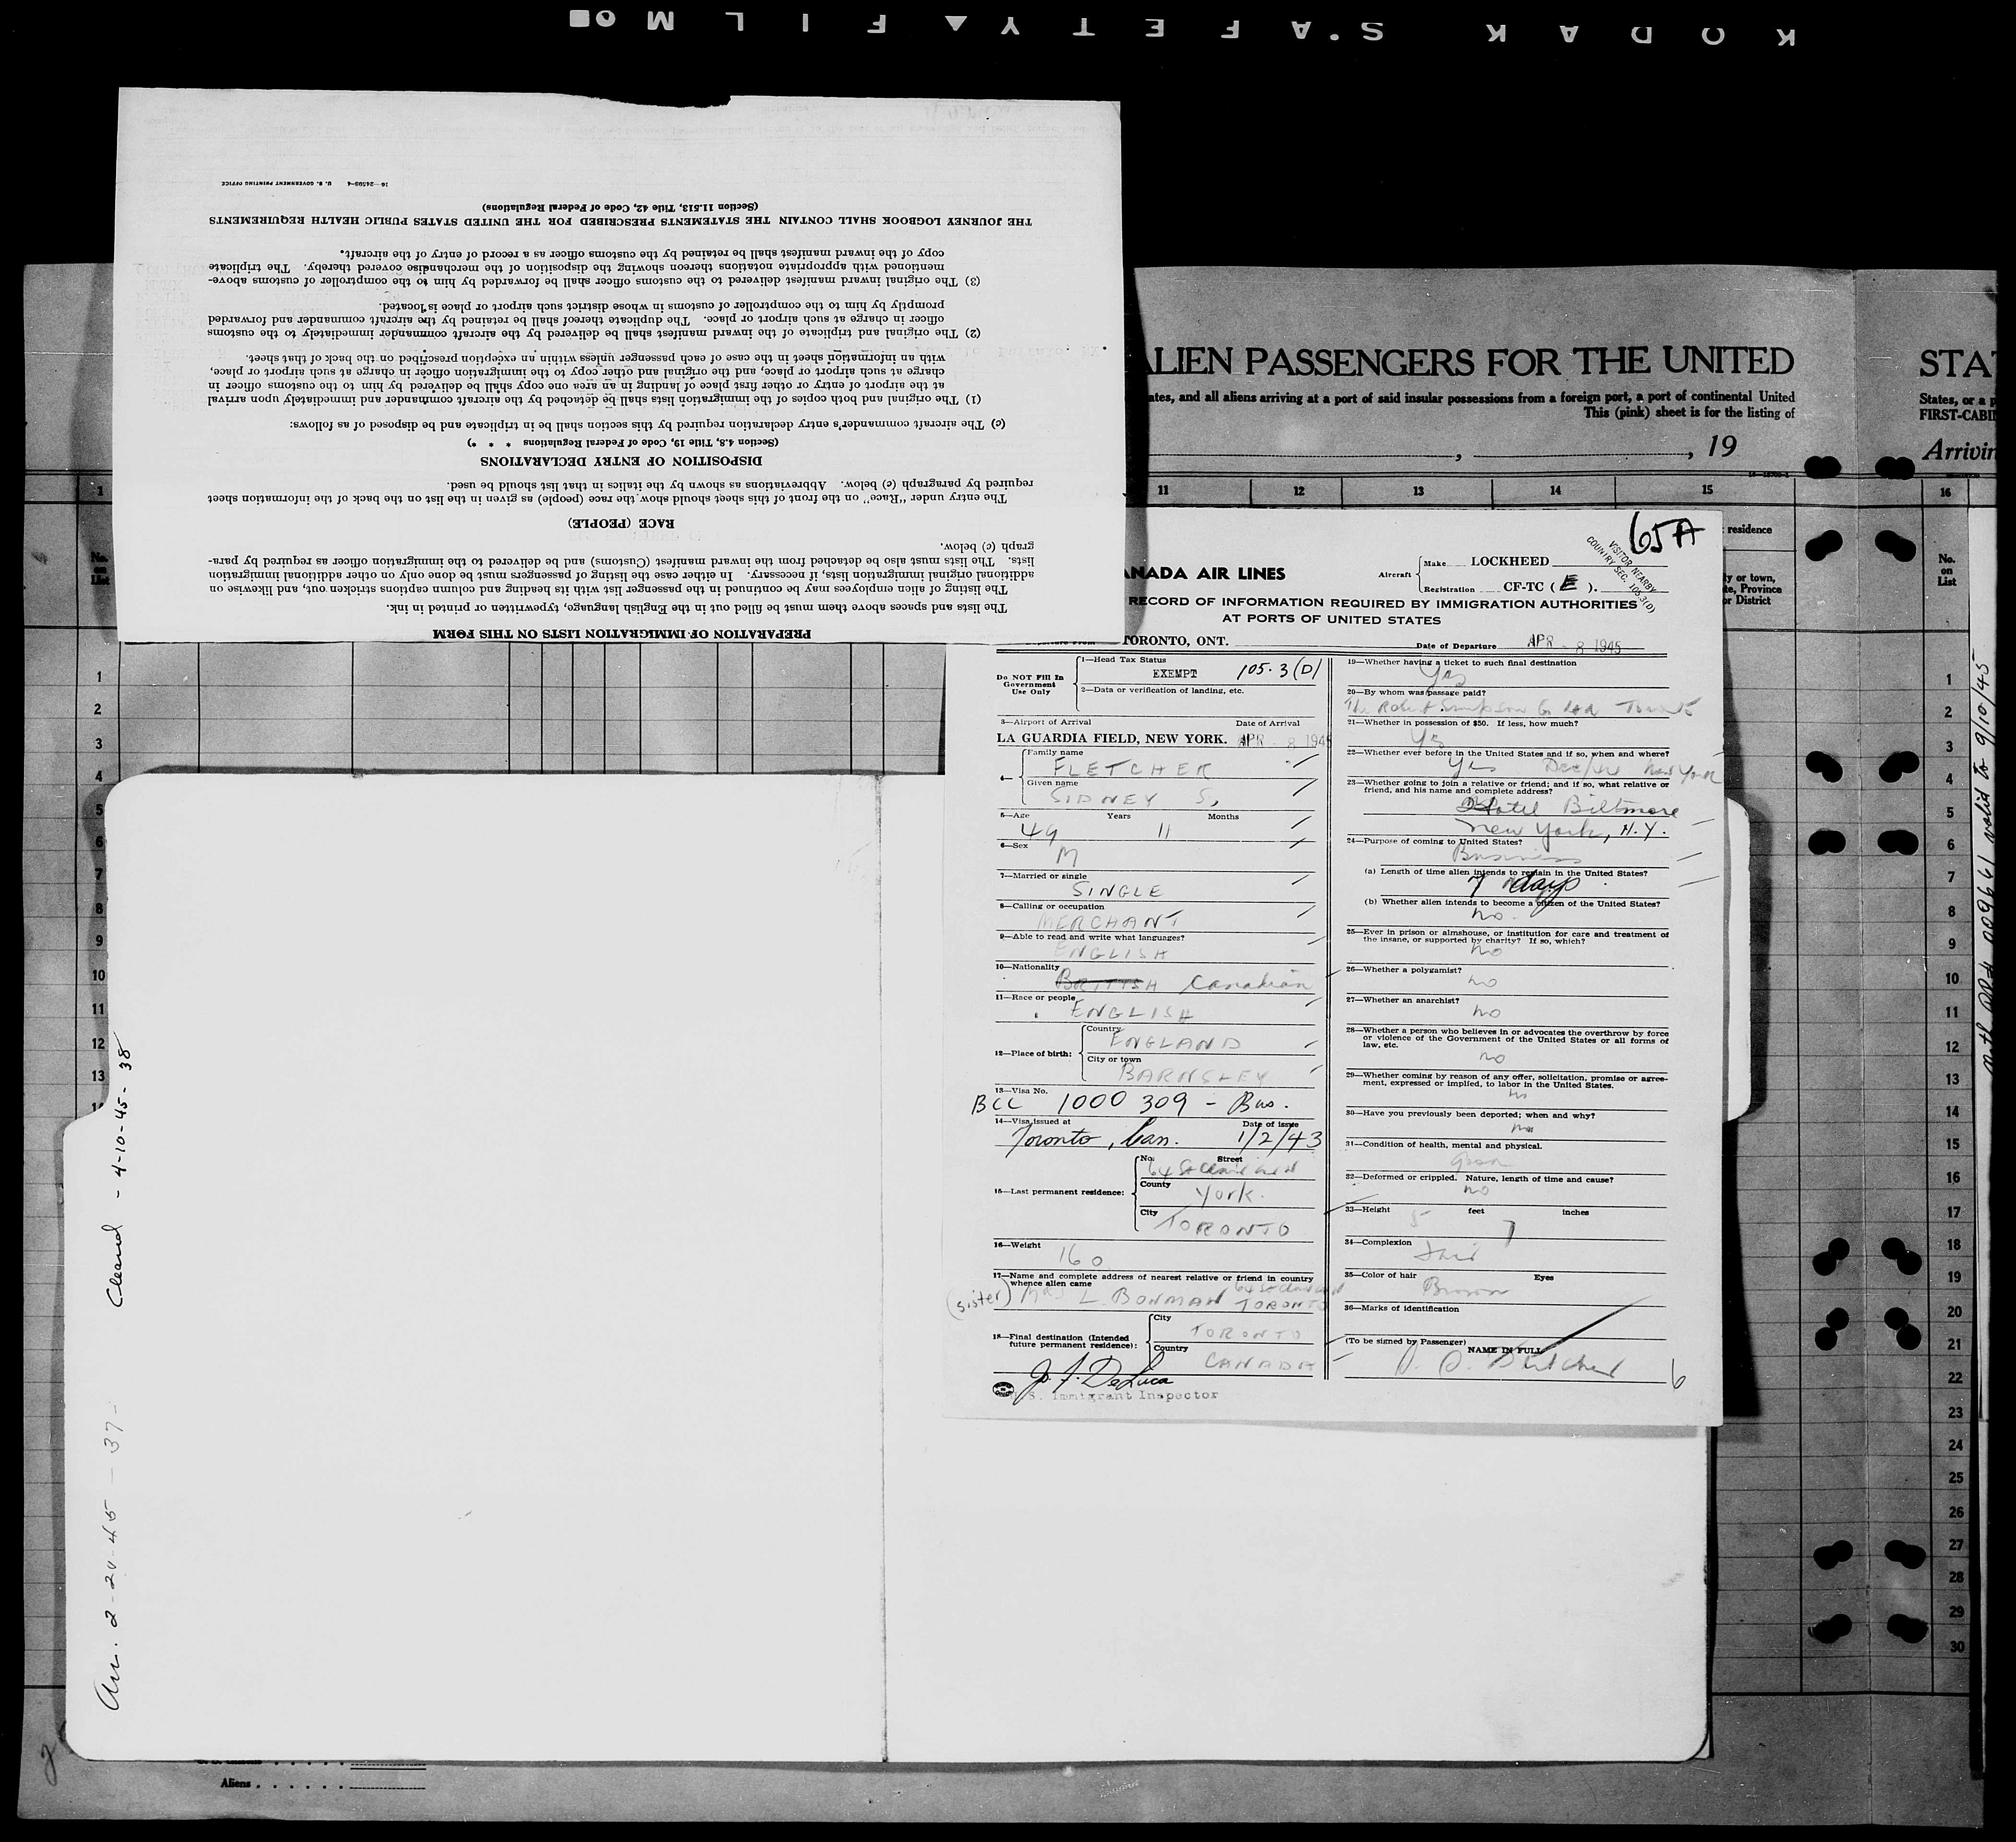 KODAK SAFETY FILM
16—24598-4 U. S. GOVERNMENT PRINTING OFFICE
PREPARATION OF IMMIGRATION LISTS ON THIS FORM
The lists and spaces above them must be filled out in the English language, typewritten or printed in ink.
The listing of alien employees may be continued in the passenger list with its heading and column captions stricken out, and likewise on
additional original immigration lists, if necessary. In either case the listing of passengers must be done only on other additional immigration
lists. The lists must also be detached from the inward manifest (Customs) and be delivered to the immigration officer as required by para-
graph (c) below.
RACE (PEOPLE)
The entry under "Race" on the front of this sheet should show the race (people) as given in the list on the back of the information sheet
required by paragraph (c) below. Abbreviations as shown by the italics in that list should be used.
DISPOSITION OF ENTRY DECLARATIONS
(Section 4.8, Title 19, Code of Federal Regulations * * *)
(c) The aircraft commander's entry declaration required by this section shall be in triplicate and be disposed of as follows:
(1) The original and both copies of the immigration lists shall be detached by the aircraft commander and immediately upon arrival
at the airport of entry or other first place of landing in an area one copy shall be delivered by him to the customs officer in
charge at such airport or place, and the original and other copy to the immigration officer in charge at such airport or place,
with an information sheet in the case of each passenger unless within an exception prescribed on the back of that sheet.
(2) The original and triplicate of the inward manifest shall be delivered by the aircraft commander immediately to the customs
officer in charge at such airport or place. The duplicate thereof shall be retained by the aircraft commander and forwarded
promptly by him to the comptroller of customs in whose district such airport or place is located.
(3) The original inward manifest delivered to the customs officer shall be forwarded by him to the comptroller of customs above-
mentioned with appropriate notations thereon showing the disposition of the merchandise covered thereby. The triplicate
copy of the inward manifest shall be retained by the customs officer as a record of entry of the aircraft.
THE JOURNEY LOGBOOK SHALL CONTAIN THE STATEMENTS PRESCRIBED FOR THE UNITED STATES PUBLIC HEALTH REQUIREMENTS
(Section 11.513, Title 42, Code of Federal Regulations)
ALIEN PASSENGERS FOR THE UNITED
STAT
ates, and all aliens arriving at a port of said insular possessions from a foreign port, a port of continental United
States, or a p
This (pink) sheet is for the listing of
FIRST-CABI
, 19
Arrivin
1 11 12 13 14 15 16
residence
No. on List
y or town,
te, Province
or District
No. on List
65A
VISITOR NEARBY
COUNTRY SEC. 105.3(D)
ANADA AIR LINES
Aircraft Make LOCKHEED
Registration CF-TC ( E ).
RECORD OF INFORMATION REQUIRED BY IMMIGRATION AUTHORITIES
AT PORTS OF UNITED STATES
TORONTO, ONT.
Date of Departure APR - 8 1945
Do NOT Fill In Government Use Only
1—Head Tax Status
EXEMPT 105.3(D)
2—Data or verification of landing, etc.
3—Airport of Arrival Date of Arrival
LA GUARDIA FIELD, NEW YORK. APR - 8 1945
4— Family name
FLETCHER
Given name
SIDNEY S.
5—Age Years Months
49 11
6—Sex
M
7—Married or single
SINGLE
8—Calling or occupation
MERCHANT
9—Able to read and write what languages?
ENGLISH
10—Nationality
BRITISH Canadian
11—Race or people
ENGLISH
12—Place of birth: Country
ENGLAND
City or town
BARNSLEY
13—Visa No.
BCC 1000 309 - Bus.
14—Visa issued at Date of issue
Toronto, Can. 1/2/43
15—Last permanent residence: No. Street
64 St Clair
County
York.
City
TORONTO
16—Weight
160
17—Name and complete address of nearest relative or friend in country
whence alien came
(sister) Mrs L. BOWMAN TORONTO
18—Final destination (Intended
future permanent residence): City
TORONTO
Country
CANADA
J. F. DeLuca
U.S. Immigrant Inspector
19—Whether having a ticket to such final destination
Yes
20—By whom was passage paid?
The Robert Simpson Co Ltd Toronto
21—Whether in possession of $50. If less, how much?
Yes
22—Whether ever before in the United States and if so, when and where?
Yes Dec/44 New York
23—Whether going to join a relative or friend; and if so, what relative or
friend, and his name and complete address?
Hotel Biltmore
New York, N.Y.
24—Purpose of coming to United States?
Business
(a) Length of time alien intends to remain in the United States?
7 days
(b) Whether alien intends to become a citizen of the United States?
no.
25—Ever in prison or almshouse, or institution for care and treatment of
the insane, or supported by charity? If so, which?
no
26—Whether a polygamist?
no
27—Whether an anarchist?
no
28—Whether a person who believes in or advocates the overthrow by force
or violence of the Government of the United States or all forms of
law, etc.
no
29—Whether coming by reason of any offer, solicitation, promise or agree-
ment, expressed or implied, to labor in the United States.
no
30—Have you previously been deported; when and why?
no
31—Condition of health, mental and physical.
good
32—Deformed or crippled. Nature, length of time and cause?
no
33—Height 5 feet 7 inches
34—Complexion
Fair
35—Color of hair Eyes
Brown
36—Marks of identification
(To be signed by Passenger)
NAME IN FULL
S. S. Fletcher
6
1
2
3
4
5
6
7
8
9
10
11
12
13
14
1
2
3
4
5
6
7
8
9
10
11
12
13
14
15
16
17
18
19
20
21
22
23
24
25
26
27
28
29
30
Arr. 2-24-45-37-
Cleared - 4-10-45-38
valid to 9/10/45
Aliens
2